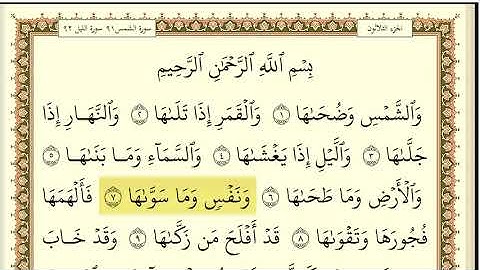 الجزء الثلاثون
سورة الشمس ٩١ سورة الليل ٩٢
بِسْمِ ٱللَّهِ ٱلرَّحْمَٰنِ ٱلرَّحِيمِ
وَٱلشَّمْسِ وَضُحَىٰهَا ١ وَٱلْقَمَرِ إِذَا تَلَىٰهَا ٢ وَٱلنَّهَارِ إِذَا
جَلَّىٰهَا ٣ وَٱلَّيْلِ إِذَا يَغْشَىٰهَا ٤ وَٱلسَّمَآءِ وَمَا بَنَىٰهَا ٥
وَٱلْأَرْضِ وَمَا طَحَىٰهَا ٦ وَنَفْسٍ وَمَا سَوَّىٰهَا ٧ فَأَلْهَمَهَا
فُجُورَهَا وَتَقْوَىٰهَا ٨ قَدْ أَفْلَحَ مَن زَكَّىٰهَا ٩ وَقَدْ خَابَ